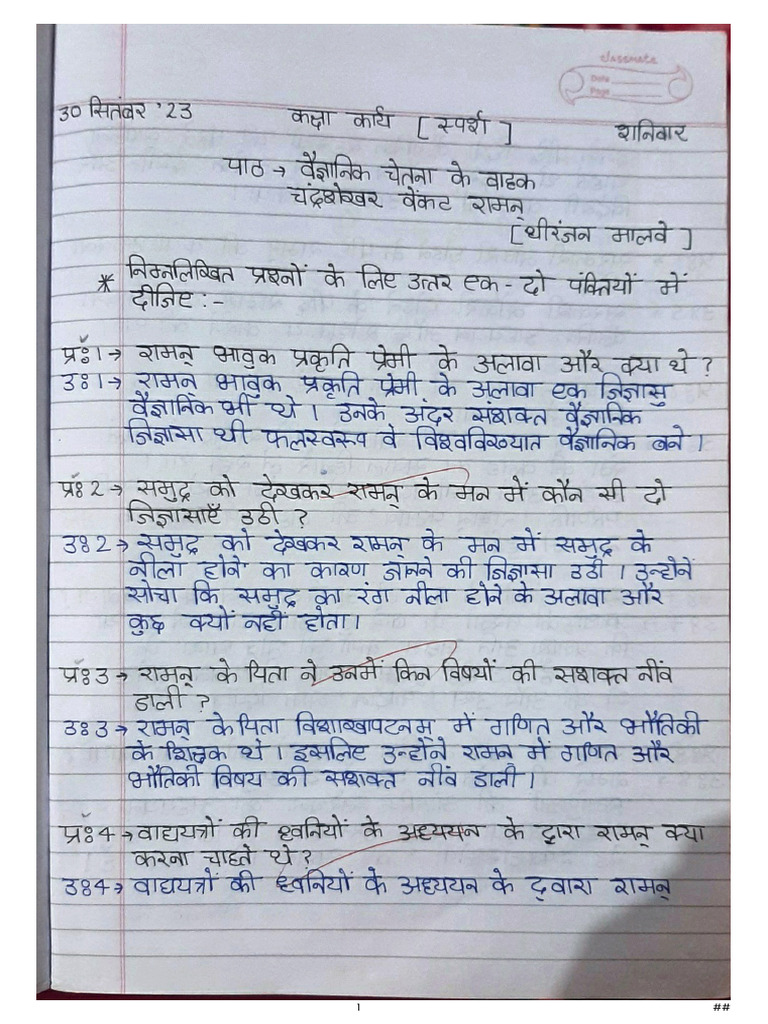 classmate
Date
Page
30 सितंबर '23 कक्षा कार्य [स्पर्श] शनिवार
पाठ → वैज्ञानिक चेतना के वाहक
चंद्रशेखर वेंकट रामन्
[धीरंजन मालवे]
* निम्नलिखित प्रश्नों के लिए उत्तर एक-दो पंक्तियों में
दीजिए :-
प्रः1→ रामन् भावुक प्रकृति प्रेमी के अलावा और क्या थे ?
उः1→ रामन् भावुक प्रकृति प्रेमी के अलावा एक जिज्ञासु
वैज्ञानिक भी थे। उनके अंदर सशक्त वैज्ञानिक
जिज्ञासा थी फलस्वरूप वे विश्वविख्यात वैज्ञानिक बने।
प्रः2→ समुद्र को देखकर रामन् के मन में कौन सी दो
जिज्ञासाएँ उठी ?
उः2→ समुद्र को देखकर रामन् के मन में समुद्र के
नीला होने का कारण जानने की जिज्ञासा उठी। उन्होनें
सोचा कि समुद्र का रंग नीला होने के अलावा और
कुछ क्यों नहीं होता।
प्रः3→ रामन् के पिता ने उनमें किन विषयों की सशक्त नींव
डाली ?
उः3→ रामन् के पिता विशाखापटनम् में गणित और भौतिकी
के शिक्षक थे। इसलिए उन्होंने रामन में गणित और
भौतिकी विषय की सशक्त नींव डाली।
प्रः4→ वाद्ययत्रों की ध्वनियों के अध्ययन के द्वारा रामन् क्या
करना चाहते थे ?
उः4→ वाद्ययत्रों की ध्वनियों के अध्ययन के द्वारा रामन्
1 ##